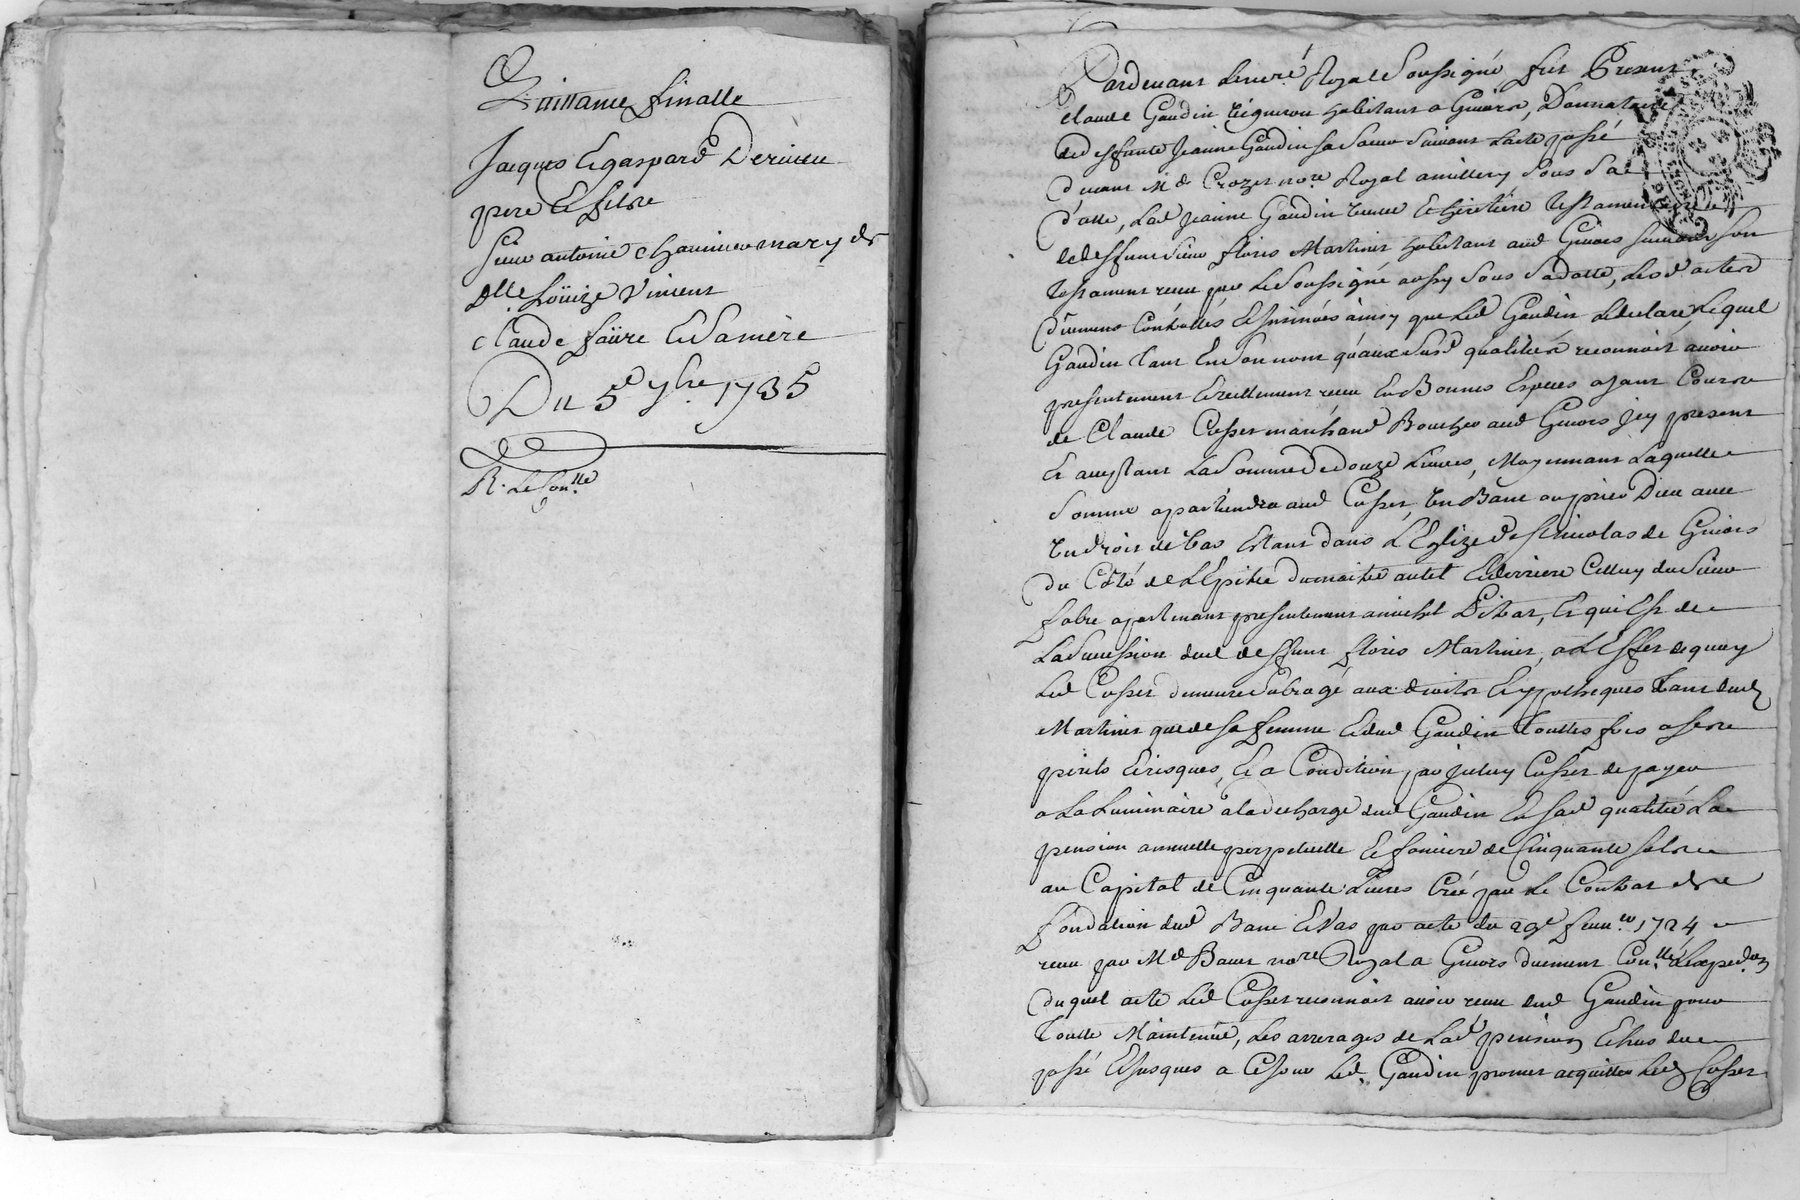 Quittance finalle
Jacques Et gaspard Derieu
pere Et fils
Sieur antoine mary de
Dlle Loüize Vincent
Claude faüre Et Sa mère
Du 5e 7bre 1735
R. le Con.lle
Pardevant Le no.re Royal Soussigné fut Present
Claude Gaudin Vigneron habitant a Givors, Donnataire
de deffunte Jeanne Gaudin sa Soeur Suivant L'acte passé
devant Me Crozet no.re Royal a millery Sous Sa
datte, Lad Jeanne Gaudin veuve Et heritiere Testamentaire
de deffunt Sieur floris Martinet habitant aud Givors suivant Son
Testament receu par Le Soussigné aussy Sous Sa datte, Lesd actes
düement Contrôllés Et Insinués ainsy que Led Gaudin Le declare, Lequel
Gaudin tant En Son nom qu'aux Susd qualités reconnoit avoir
presentement Et reellement receu En Bonnes Especes ayant Cours
de Claude Cusset marchand Boucher aud Givors Icy present
Et acceptant La Somme De douze Livres, Moyennant Laquelle
Somme apartiendra aud Cusset, Un Banc ou prier Dieu avec
Un droit de Vas Estant dans L'Eglize de St nicolas de Givors
du Côté de L'Epitre du maitre autel Et derriere Celluy du Sieur
fabre apartenant presentement a michel Pitrat, Et qui Est de
La Succession dud deffunt floris Martinet, a L'Effet dequoy
Led Cusset demeure Subrogé aux droits Et ypotheques tant dud
Martinet que de sa femme Et dud Gaudin Touttes fois a ses
perils Et risques, Et a Condition par Iceluy Cusset de payer
a La Luminaire a la decharge dud Gaudin En sad qualité La
pension annuelle perpetuelle Et fonciere de Cinquante sols
au Capital de Cinquante Livres Creé par Le Contrat de
fondation dud Banc Et Vas par acte du 29e 1724
receu par Me no.re Royal a Givors duement Con.llé L'expedon
duquel acte Led Cusset reconnoit avoir receu dud Gaudin pour
Toutte Maintenüe, Les arrerages de Lad pension Echus du
passé Et Jusques a Ce Jour Led. Gaudin promet acquitter Led Cusset